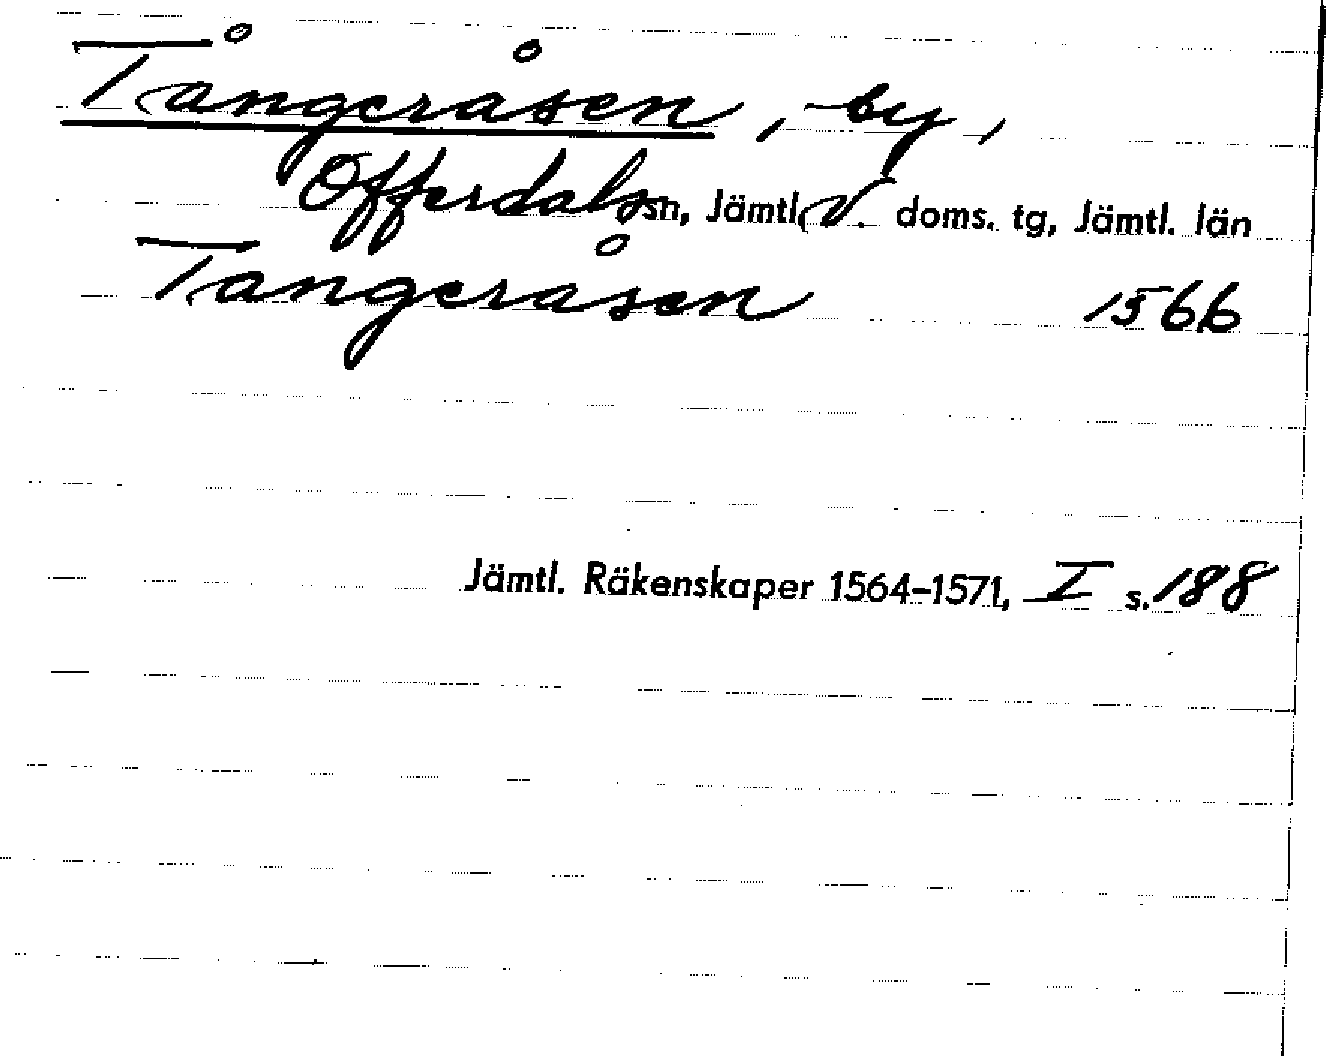 Tångeråsen, by,
Offerdals sn, Jämtl. V. doms. tg, Jämtl. län
Tangeråsen 1566
Jämtl. Räkenskaper 1564-1571, I s. 188